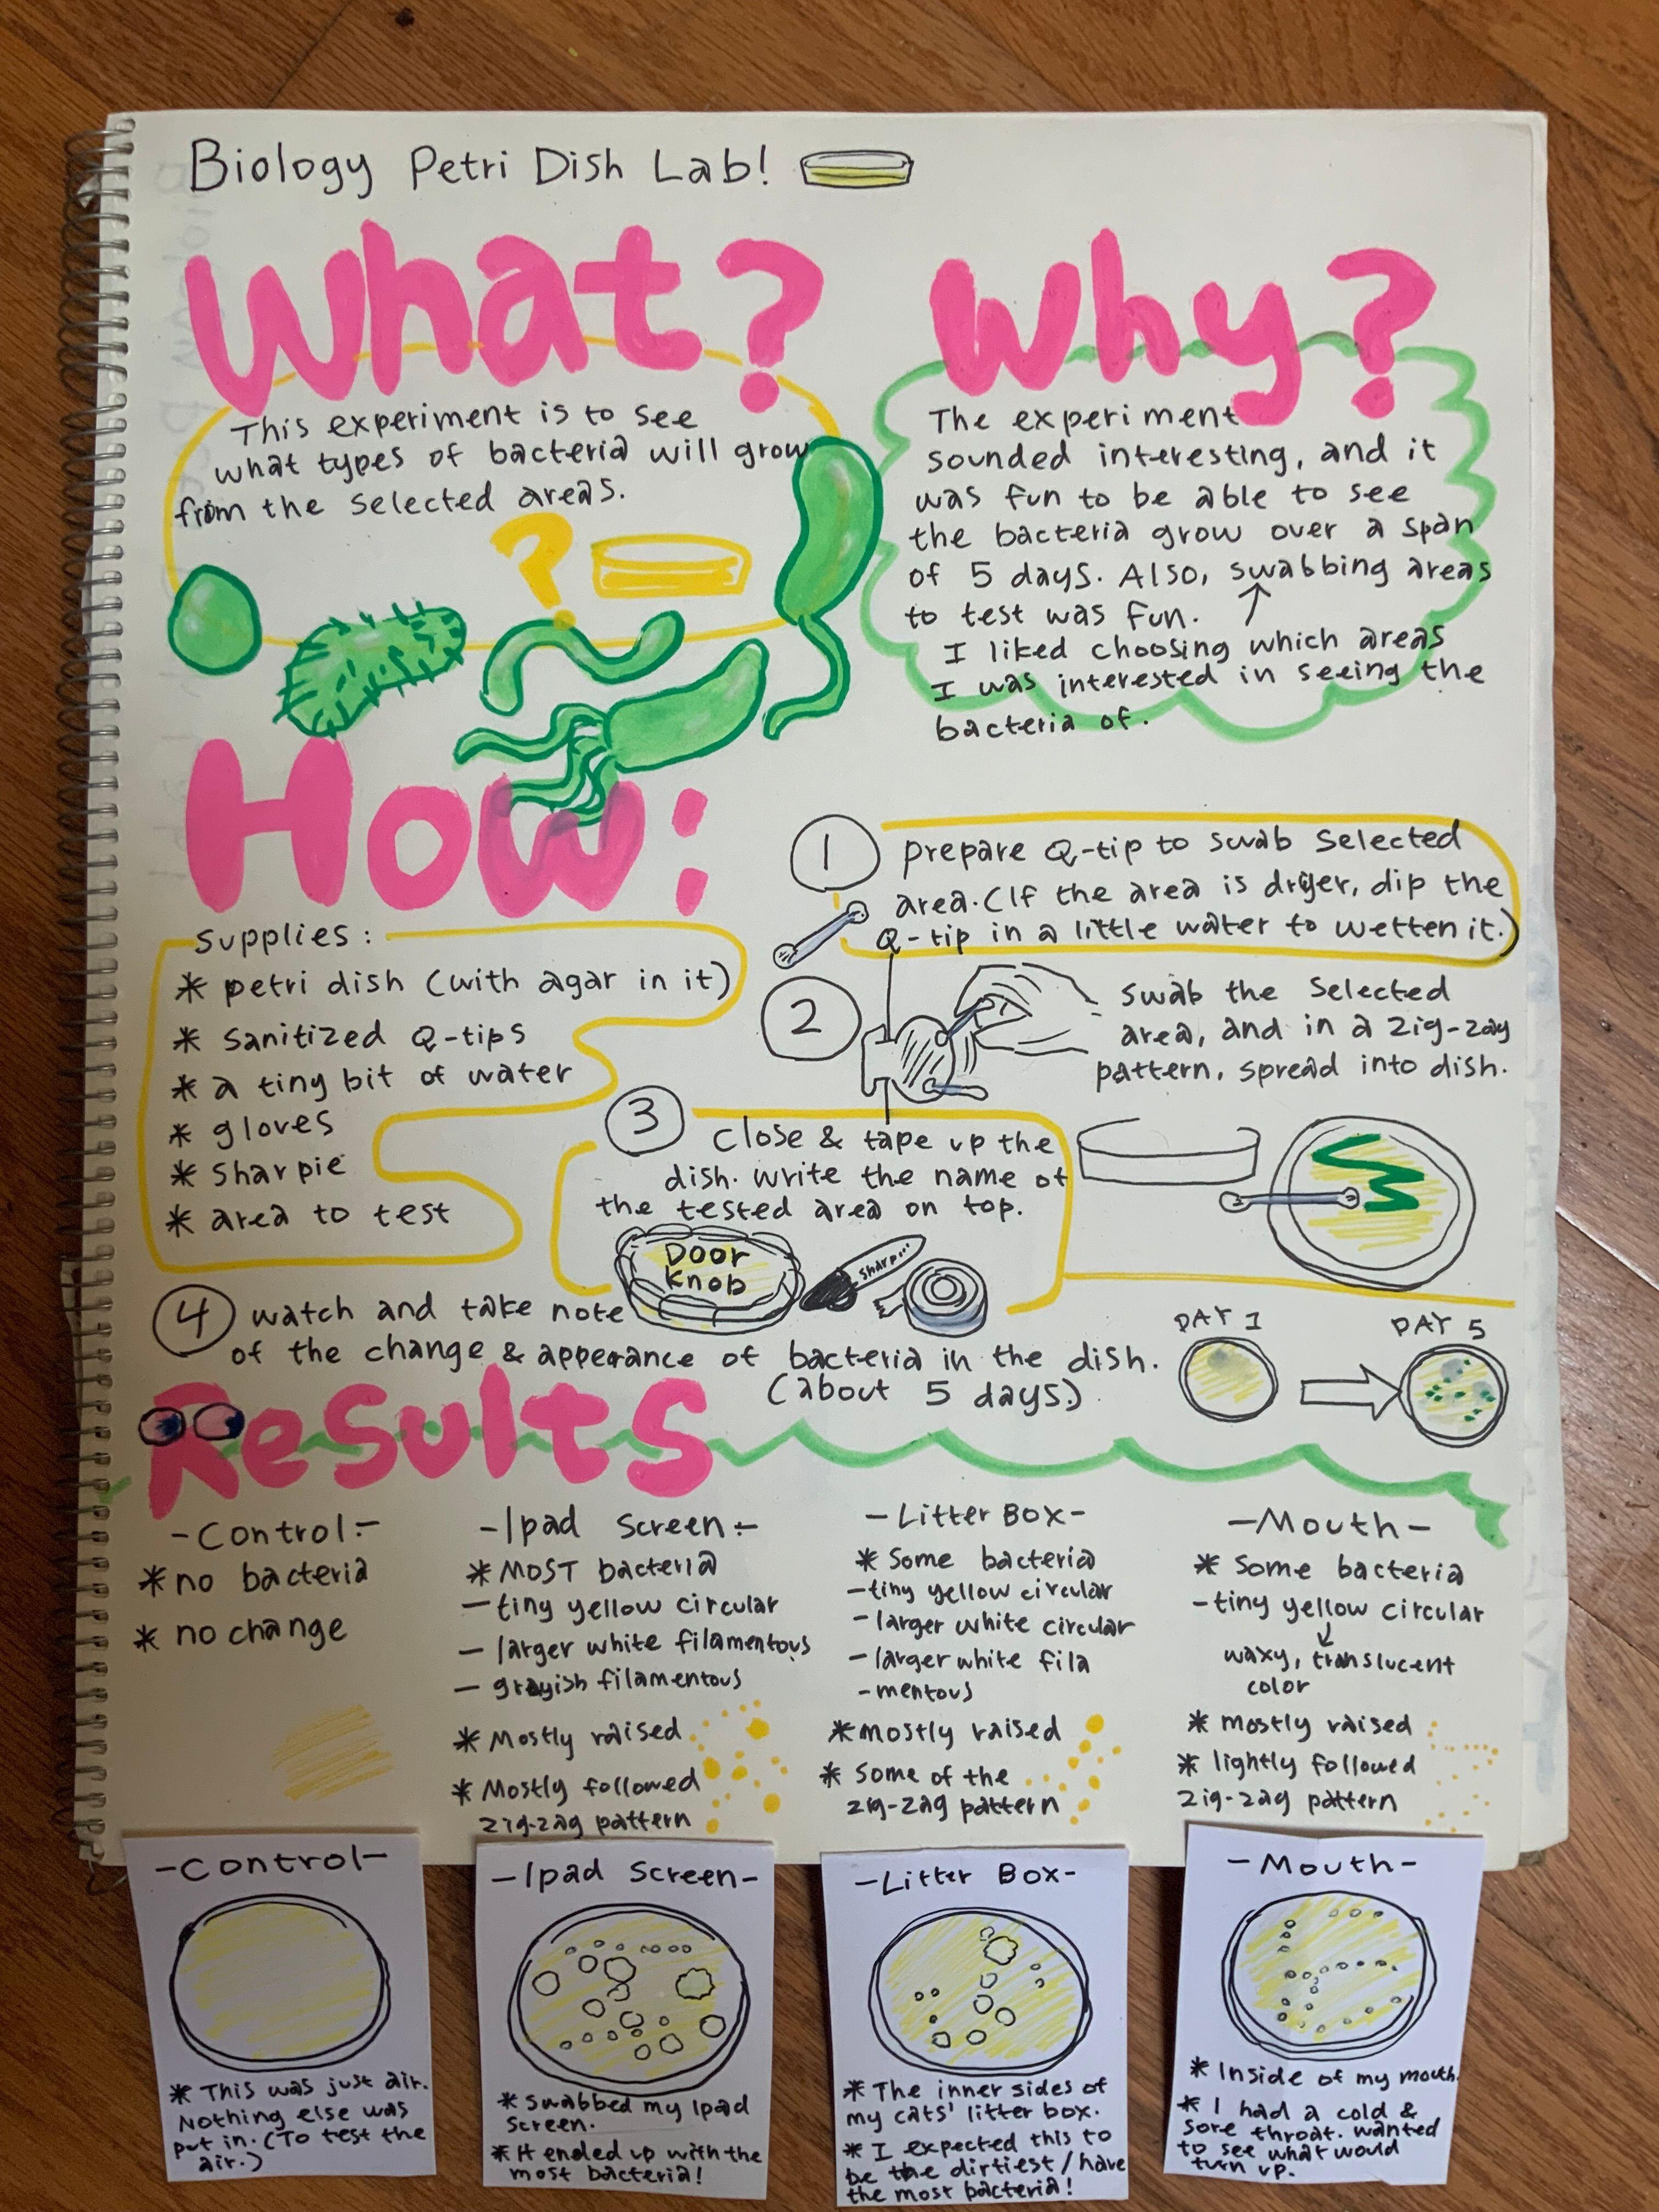 Biology Petri Dish Lab!
What?
This experiment is to see
what types of bacteria will grow
from the selected areas.
?
Why?
The experiment
sounded interesting, and it
was fun to be able to see
the bacteria grow over a span
of 5 days. Also, swabbing areas
to test was fun.
I liked choosing which areas
I was interested in seeing the
bacteria of.
How:
supplies:
* petri dish (with agar in it)
* sanitized Q-tips
* a tiny bit of water
* gloves
* sharpie
* area to test
1 prepare Q-tip to swab selected
area. (If the area is dryer, dip the
Q-tip in a little water to wetten it.)
2 swab the selected
area, and in a zig-zag
pattern, spread into dish.
3 close & tape up the
dish. write the name of
the tested area on top.
Door
Knob
sharp...
4 watch and take note
of the change & apperance of bacteria in the dish.
(about 5 days.)
DAY 1
DAY 5
Results
-Control:-
* no bacteria
* no change
-Ipad screen:-
* MOST bacteria
- tiny yellow circular
- larger white filamentous
- grayish filamentous
* Mostly raised
* Mostly followed
zig-zag pattern
-Litter Box-
* some bacteria
-tiny yellow circular
-larger white circular
-larger white fila
-mentous
* mostly raised
* some of the
zig-zag pattern
-Mouth-
* some bacteria
-tiny yellow circular
waxy, translucent
color
* mostly raised
* lightly followed
zig-zag pattern
-Control-
* This was just air.
Nothing else was
put in. (To test the
air.)
-Ipad Screen-
* swabbed my Ipad
screen.
* It ended up with the
most bacteria!
-Litter Box-
* The inner sides of
my cats' litter box.
* I expected this to
be the dirtiest/have
the most bacteria!
-Mouth-
* Inside of my mouth.
* I had a cold &
sore throat. wanted
to see what would
turn up.